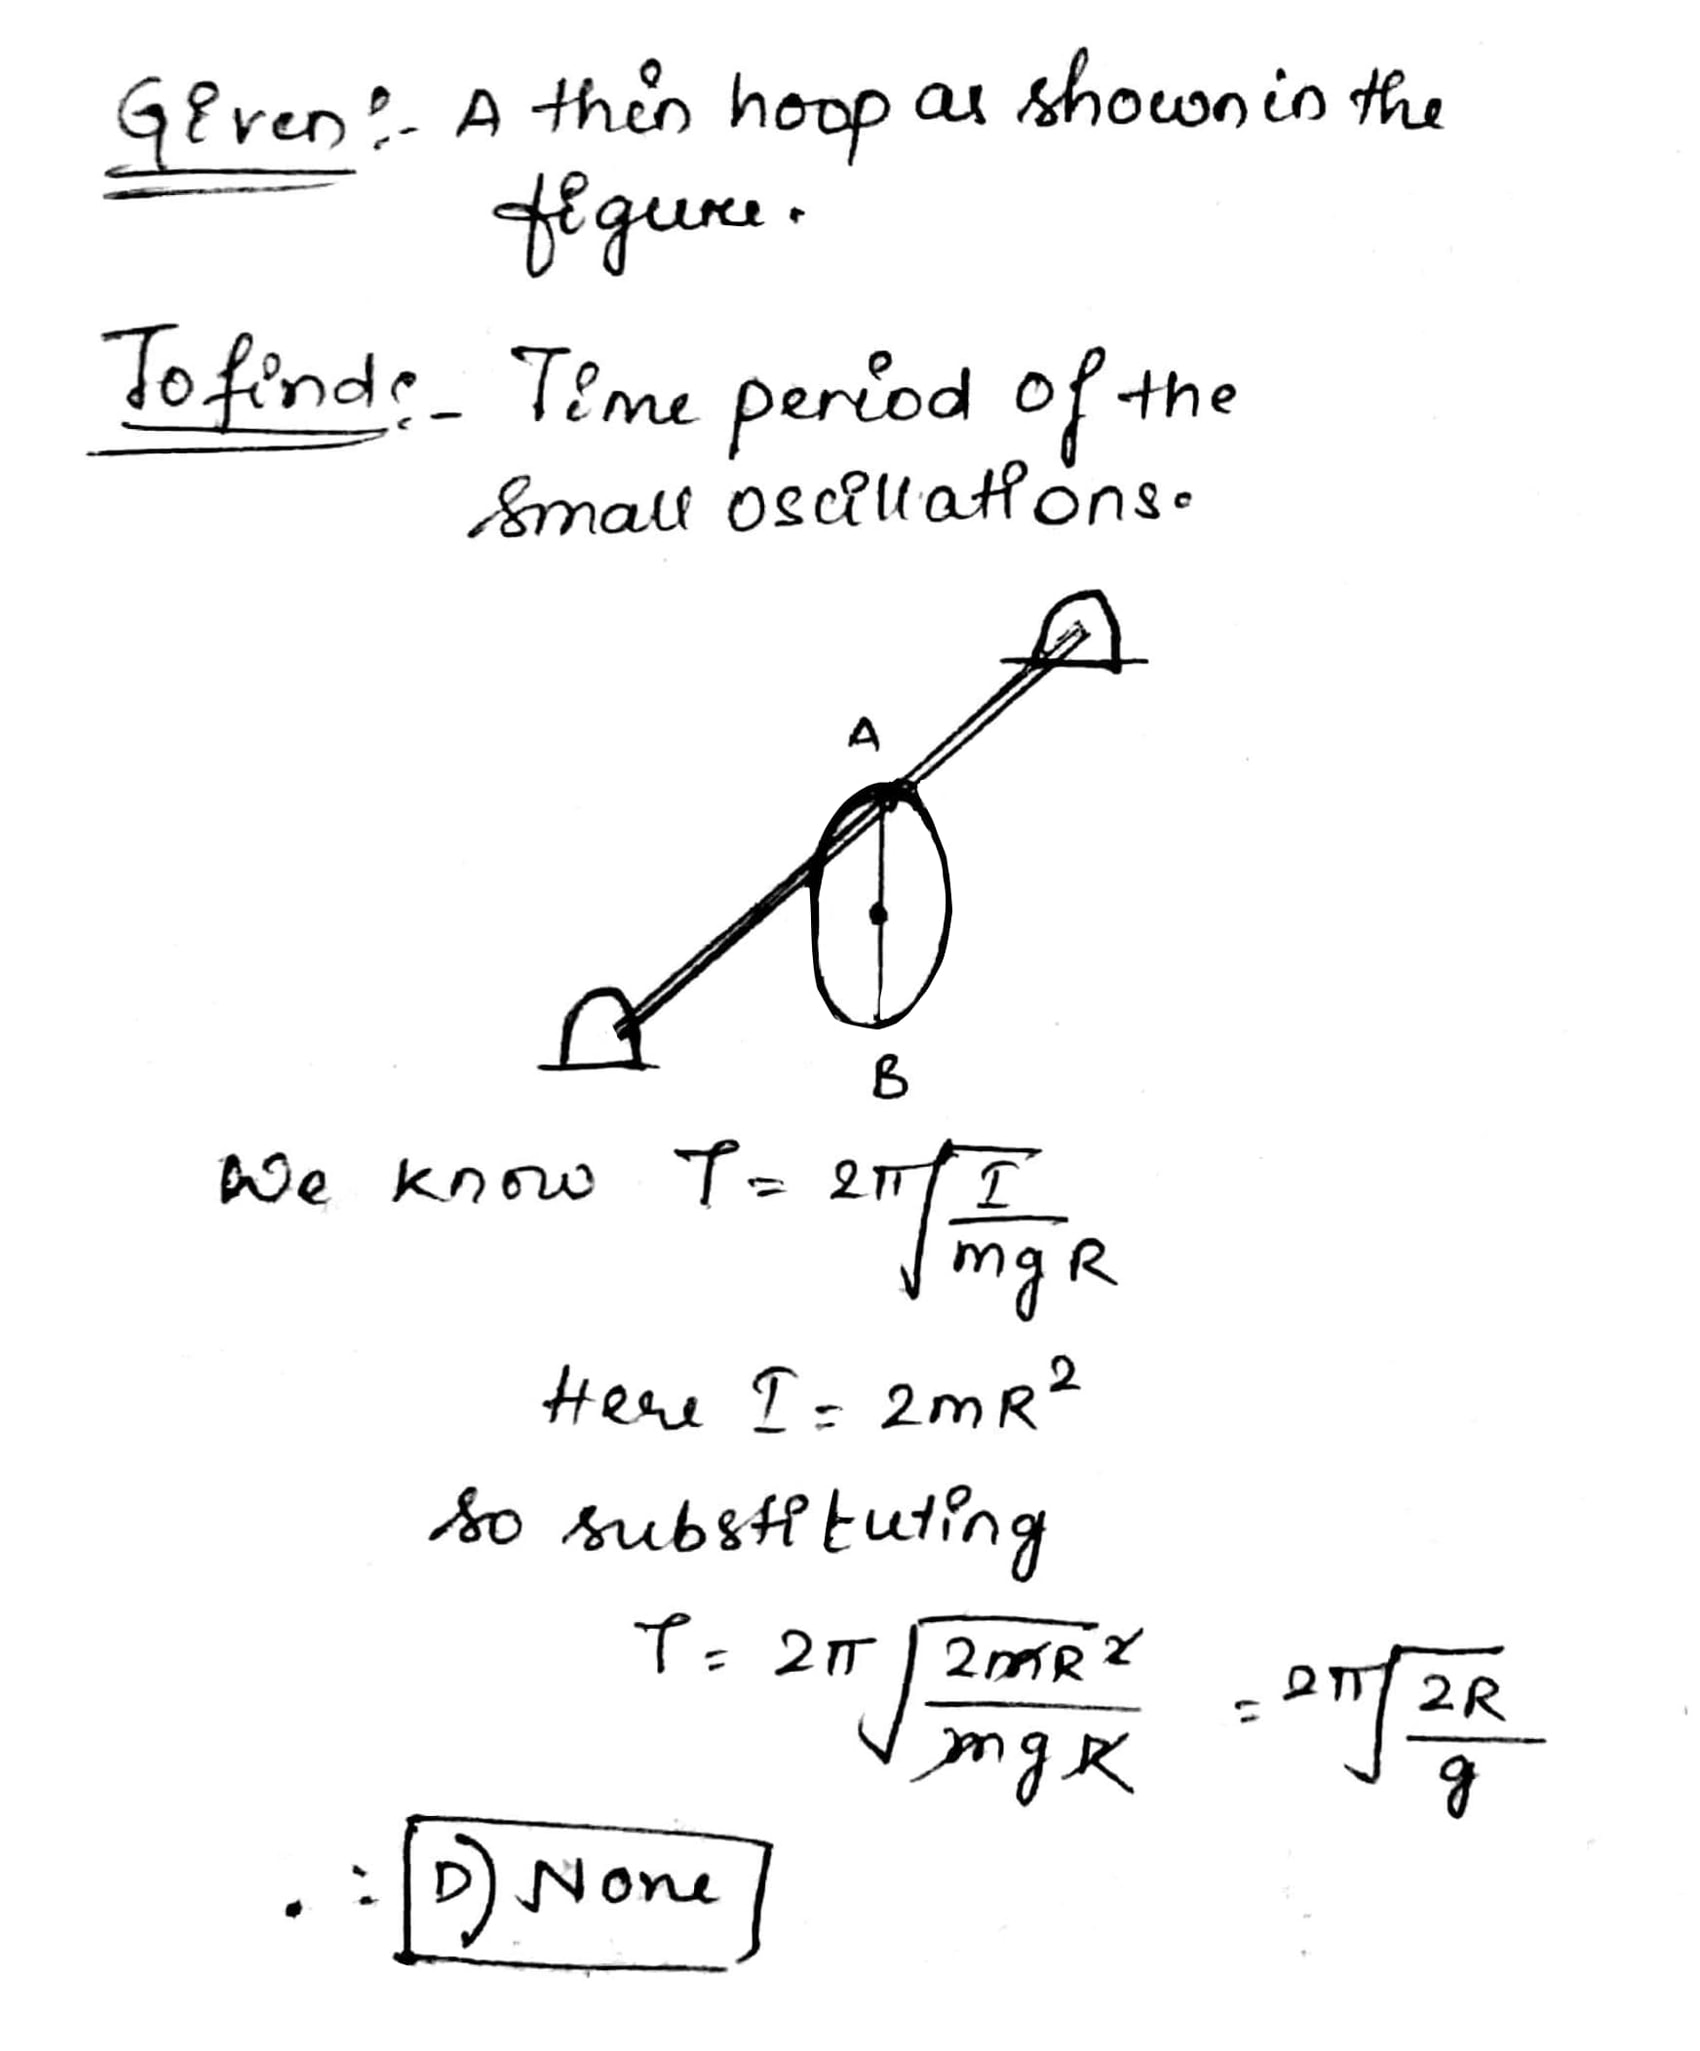 Given:- A thin hoop as shown in the
figure.
To find:- Time period of the
small oscillations.
A
B
We know T = 2π√(I/mgR)
Here I = 2mR²
so substituting
T = 2π√(2mR²/mgR) = 2π√(2R/g)
∴ D) None